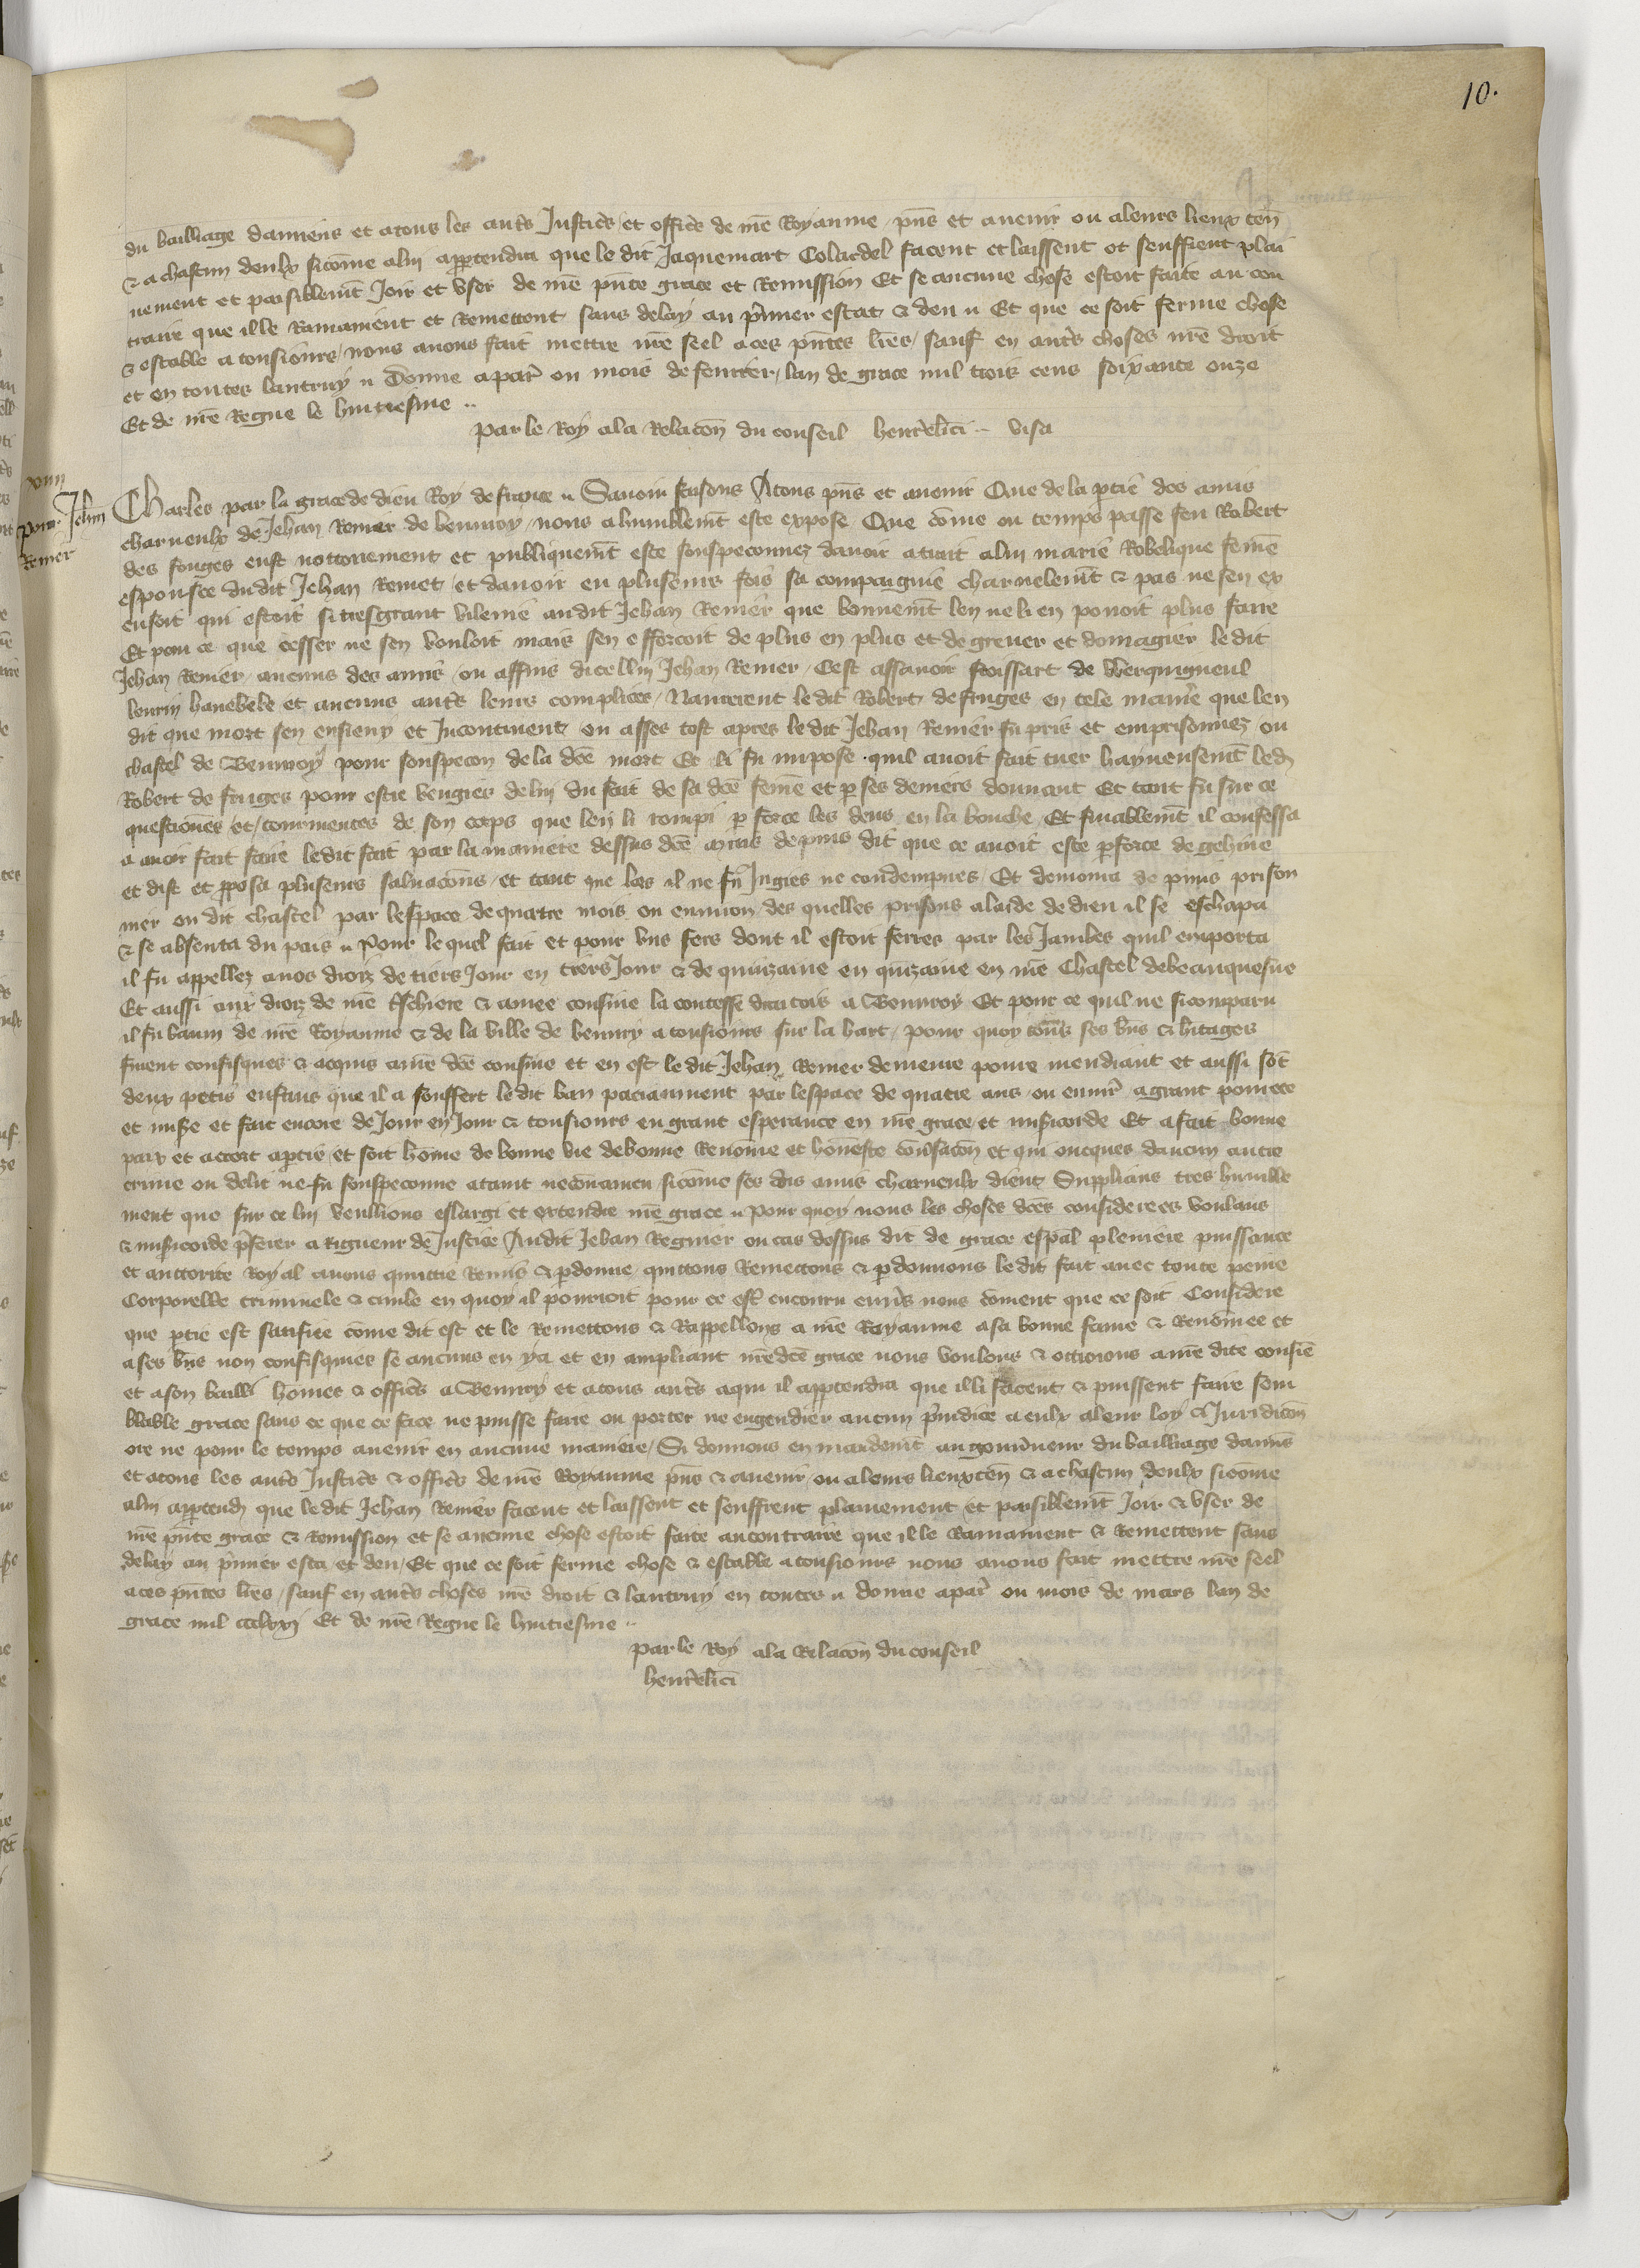 10.
du bailliage damiens et a tous les autͬs Justicͬs et officͬs de nr̄e Royaume pn̄s et auenir ou a leurs lieux ten̄
& a chascun deulx sicōme a lui apꝑtendra que le dit Jaquemart Colardel facent et laissent et seuffrent plai
nement et paisiblemt̄ Joir et vser de nr̄e pn̄te grace et Remission Et se aucune chose estoit faite au con
traire que il le Ramainent et Remettent sans delay au p̄mier estat & deu Et que ce soit ferme chose
& estable a tousiours nous auons fait mettre nr̄e seel a ces pn̄tes lr̄es sauf en autͬs choses nr̄e droit
et en toutes lautruy Donne a par̄ ou mois de feurier lan de grace mil trois cens soixante onze
Et de nr̄e Regne le huitiesme
par le Roy a la Relacōn du conseil henr̄clici visa
xviii
pour Jehan
Remer
Charles par la grace de dieu Roy de france Sauoir faisons A tous pn̄s et auenir Que de la ptiē des amis
charneulx de Jehan Remer de beuuroy nous a humblemt̄ este expose Que cōme ou temps passe feu Robert
des fouges eust notoirement et publiquemt̄ este souspeconnez dauoir atrait a lui marie Robelique femē
espousee dudit Jehan Remer et dauoir eu pluseurs fois sa compaignie charnelemt̄ & pas ne sen ex
cusoit qui estoit si tresgrant vilenie audit Jehan Remer que bonnemt̄ len ne li en pouoit plus faire
Et pour ce que cesser ne sen vouloit mais sen efforcoit de plus en plus et de greuer et domagier le dit
Jehan Remer aucuns des amis ou affins dicellui Jehan Remer Cest assauoir froissart de Werquigneul
leurin hanebebe et aucuns autͬs leurs complices Naurerent le dit Robert de fruges en tele manie͛ que len
dit que mort sen ensieuy et Incontinent ou asses tost apres le dit Jehan Remer fu pris et emprisonnez ou
chastel de Beuuroy pour souspecon de la dc̄e mort Et li fu impose quil auoit fait tuer hayneusemt̄ led
Robert de fruges pour estre vengies de lui du fait de sa dc̄e femē et ꝑ ses deniers donnant Et tant fu sur ce
questiones et tourmentes de son corps que len li rompi ꝑ force les dens en la bouche Et finablemt̄ il confessa
a auoir fait faire le dit fait par la maniere dessus dc̄e mais depuis dit que ce auoit este ꝑ force de gehine
et dist et ꝓposa pluseurs saluacōns et tant que lors il ne fu Jugies ne condempnes Et demoura de puis prison
nier ou dit chastel par lespace de quatre mois ou enuiron des quelles prisons a laide de dieu il se eschapa
& se absenta du pais Pour le quel fait et pour vns fers dont il estoit ferres par les Jambes quil emporta
il fu appellez a nos droiz de tiers Jour en tiers Jour & de quinzaine en quīzaine en nr̄e Chastel de beauquesne
Et aussi aux droiz de nr̄e tschiere & amee cousine la contesse dartois a Beuuroy Et pour ce quil ne si comparu
il fu banni de nr̄e Royaume & de la ville de beuury a tousiours sur la hart pour quoy tous ses bn̄s & h̄itages
furent confisques & acquis a nr̄e dc̄e cousine et en est le dit Jehan Remer demeure poure mendiant et aussi sōt
deux petis enfans que il a souffert le dit ban paciaument par lespace de quatre ans ou enuir̄ a grant pourete
et mise͛ et fait encore de Jour en Jour & tousiours en grant esperance en nr̄e grace et mis͛icorde Et a fait bonne
paix et accort a ptie et soit hōme de bonne vie de bonne Renōme et honneste conu͛sacōn et qui oncques daucun autre
crime ou delit ne fu souspeconne ataint ne conuaincu sicōme ses dis amis charneulx dient Supplians tres humble
ment que sur ce lui veullions eslargir et extendre nr̄e grace pour quoy nous les choses dc̄es considerees voulans
& mis͛icorde p̄ferer a Rigueur de Justice Audit Jehan Regnier ou cas dessus dit de grace esp̄al pleniere puissance
et auctorite Royal auons quittie Remis & ꝑdonne quittons Remettons & ꝑdonnons le dit fait auec toute peine
Corporelle criminele & ciuile en quoy il pourroit pour ce estr̄ encouru enuͬs nous coment que ce soit Considere
que ptie est satisfite cōme dit est et le Remettons & Rappellons a nr̄e Royaume a sa bonne fame & Renōmee et
a ses bn̄s non confisquies se aucuns en ya et en ampliant nr̄edc̄e grace nous voulons & ottroions a nr̄e dite cousīe
et a son bailli hōmes & officͬs a Beuury et a tous autͬs a qui il apꝑtendra que il li facent & puissent faire sem
blable grace sans ce que ce face ne puisse faire ou porter ne engendrer aucun p̄iudice a eulx a leur loy & Juridicōn
ore ne pour le temps auenir en aucune maniere Si donnons en mandemt̄ au gouu͛neur du bailliage damiēs
et a tous les autͬs Justicͬs & officͬs de nr̄e Royaume pn̄s & auenir ou a leurs lieux ten̄ & a chascun deulx sicōme
a lui apꝑtend͛ que le dit Jehan Remer facent et laissent et seuffrent plainement et paisiblemt̄ Joir & vser de
nr̄e pn̄te grace & Remission et se aucune chose estoit faite au contraire que il le Ramainent & Remettent sans
delay au p̄mier esta et deu Et que ce soit ferme chose & estable a tousiours nous auons fait mettre nr̄e seel
a ces pn̄tes lr̄es sauf en autͬs choses nr̄e droit & lautruy en toutes donne a par̄ ou mois de mars lan de
grace mil ccclxxj Et de nr̄e Regne le huitiesme
par le Roy a la Relacōn du conseil
henr̄clici